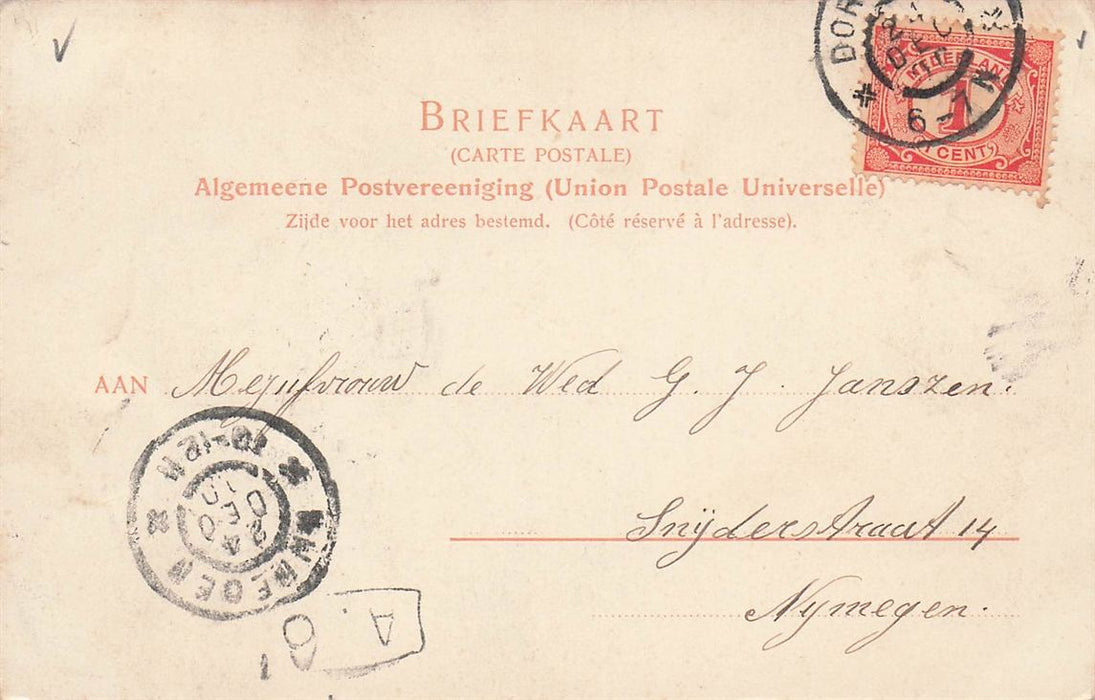 DOR
DEC
6-7 N
NEDERLAND
1
CENT
BRIEFKAART
(CARTE POSTALE)
Algemeene Postvereeniging (Union Postale Universelle)
Zijde voor het adres bestemd. (Côté réservé à l'adresse).
AAN Mejufvrouw de Wed G. J. Janszen.
Snijderstraat 14
Nymegen.
10-12N
24
DEC
A.